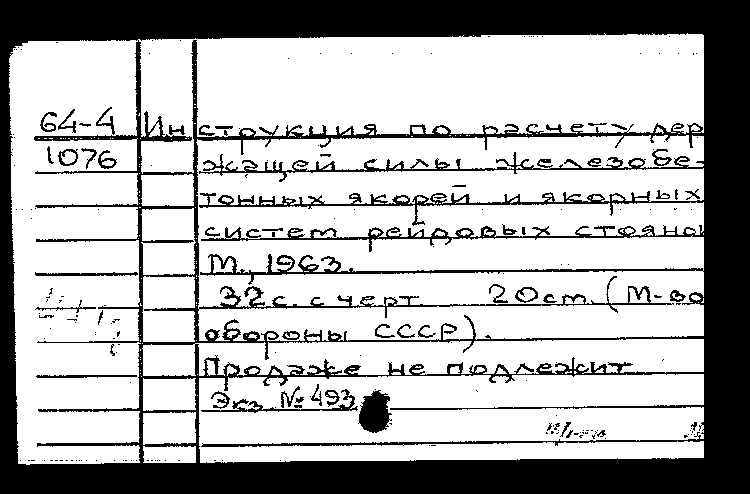 64-4 Инструкция по расчету дер
1076 жащей силы железобе-
тонных якорей и якорных
систем рейдовых стоянок
М., 1963.
32с. с черт. 20см. (М-во
обороны СССР).
Продаже не подлежит
Экз. № 493